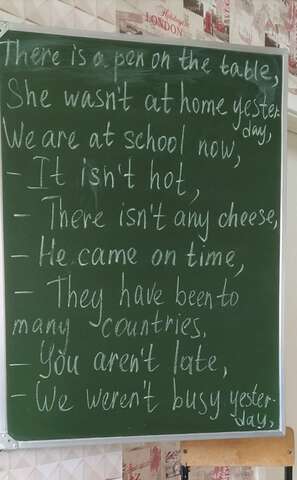 LONDON
There is a pen on the table,
She wasn't at home yester-
day,
We are at school now,
- It isn't hot,
- There isn't any cheese,
- He came on time,
- They have been to
many countries,
- You aren't late,
- We weren't busy yester-
day,